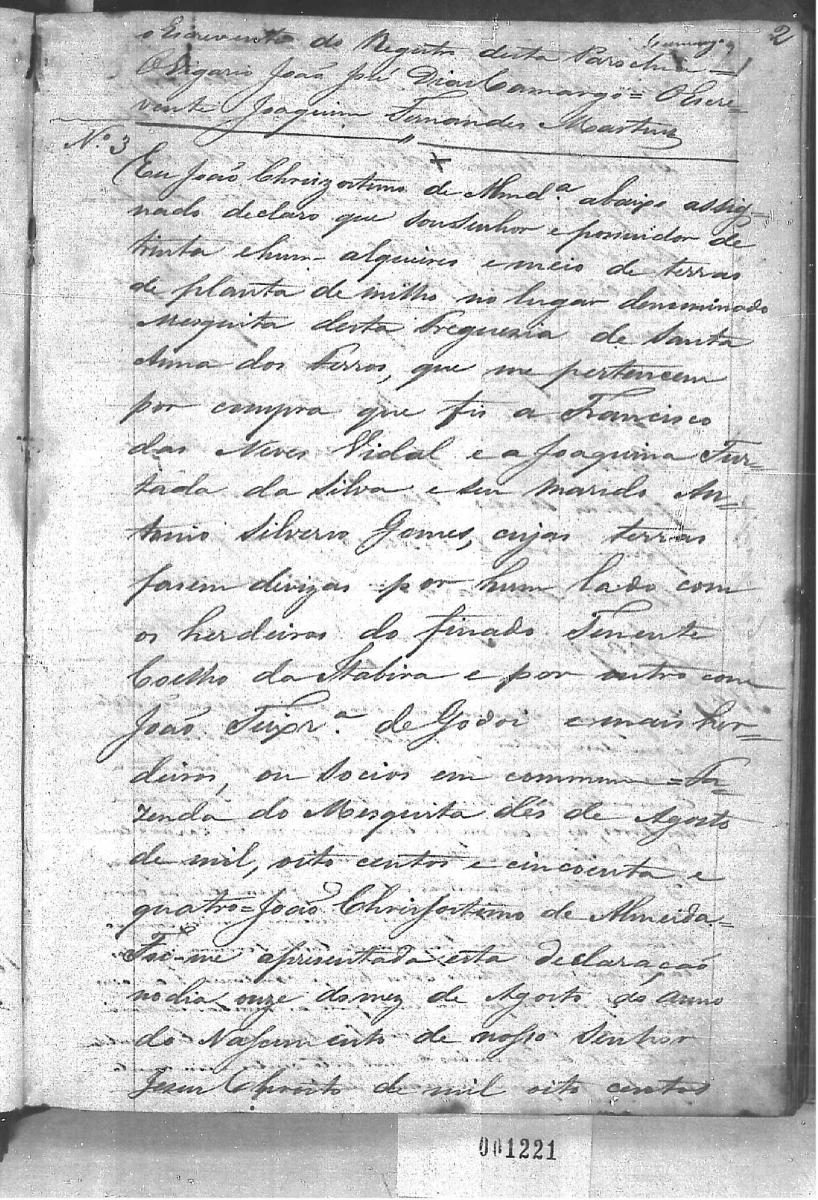 2
o Escrevente do Registo desta Parochia =
O Vigario João José Dias Camargo = O Escre=
vente Joaquim Fernandes Martins
Nº 3
Eu João Chrizostimo de Almdª abaixo assig=
nado declaro que sou senhor e possuidor de
trinta e hum alqueires e meio de terras
de planta de milho no lugar denominado
Mesquita desta Freguezia de Santa
Anna dos Ferros, que me pertencem
por compra que fis a Francisco
das Neves Vidal e a Joaquina Fur=
tada da Silva e seu marido An=
tonio Silverio Gomes, cujas terras
fasem divizas por hum lado com
os herdeiros do finado Tenente
Coelho da Itabira e por outro com
João Teixrª de Godoi e mais her=
deiros, ou socios em commum = Fa=
zenda do Mesquita dés de Agosto
de mil, oito centos e cincoenta e
quatro = João Chrisostimo de Almeida =
Foi-me apresentada esta declaração
no dia onze do mez de Agosto do Anno
do Nascimento de nosso Senhor
Jesus Christo de mil oito centos
001221